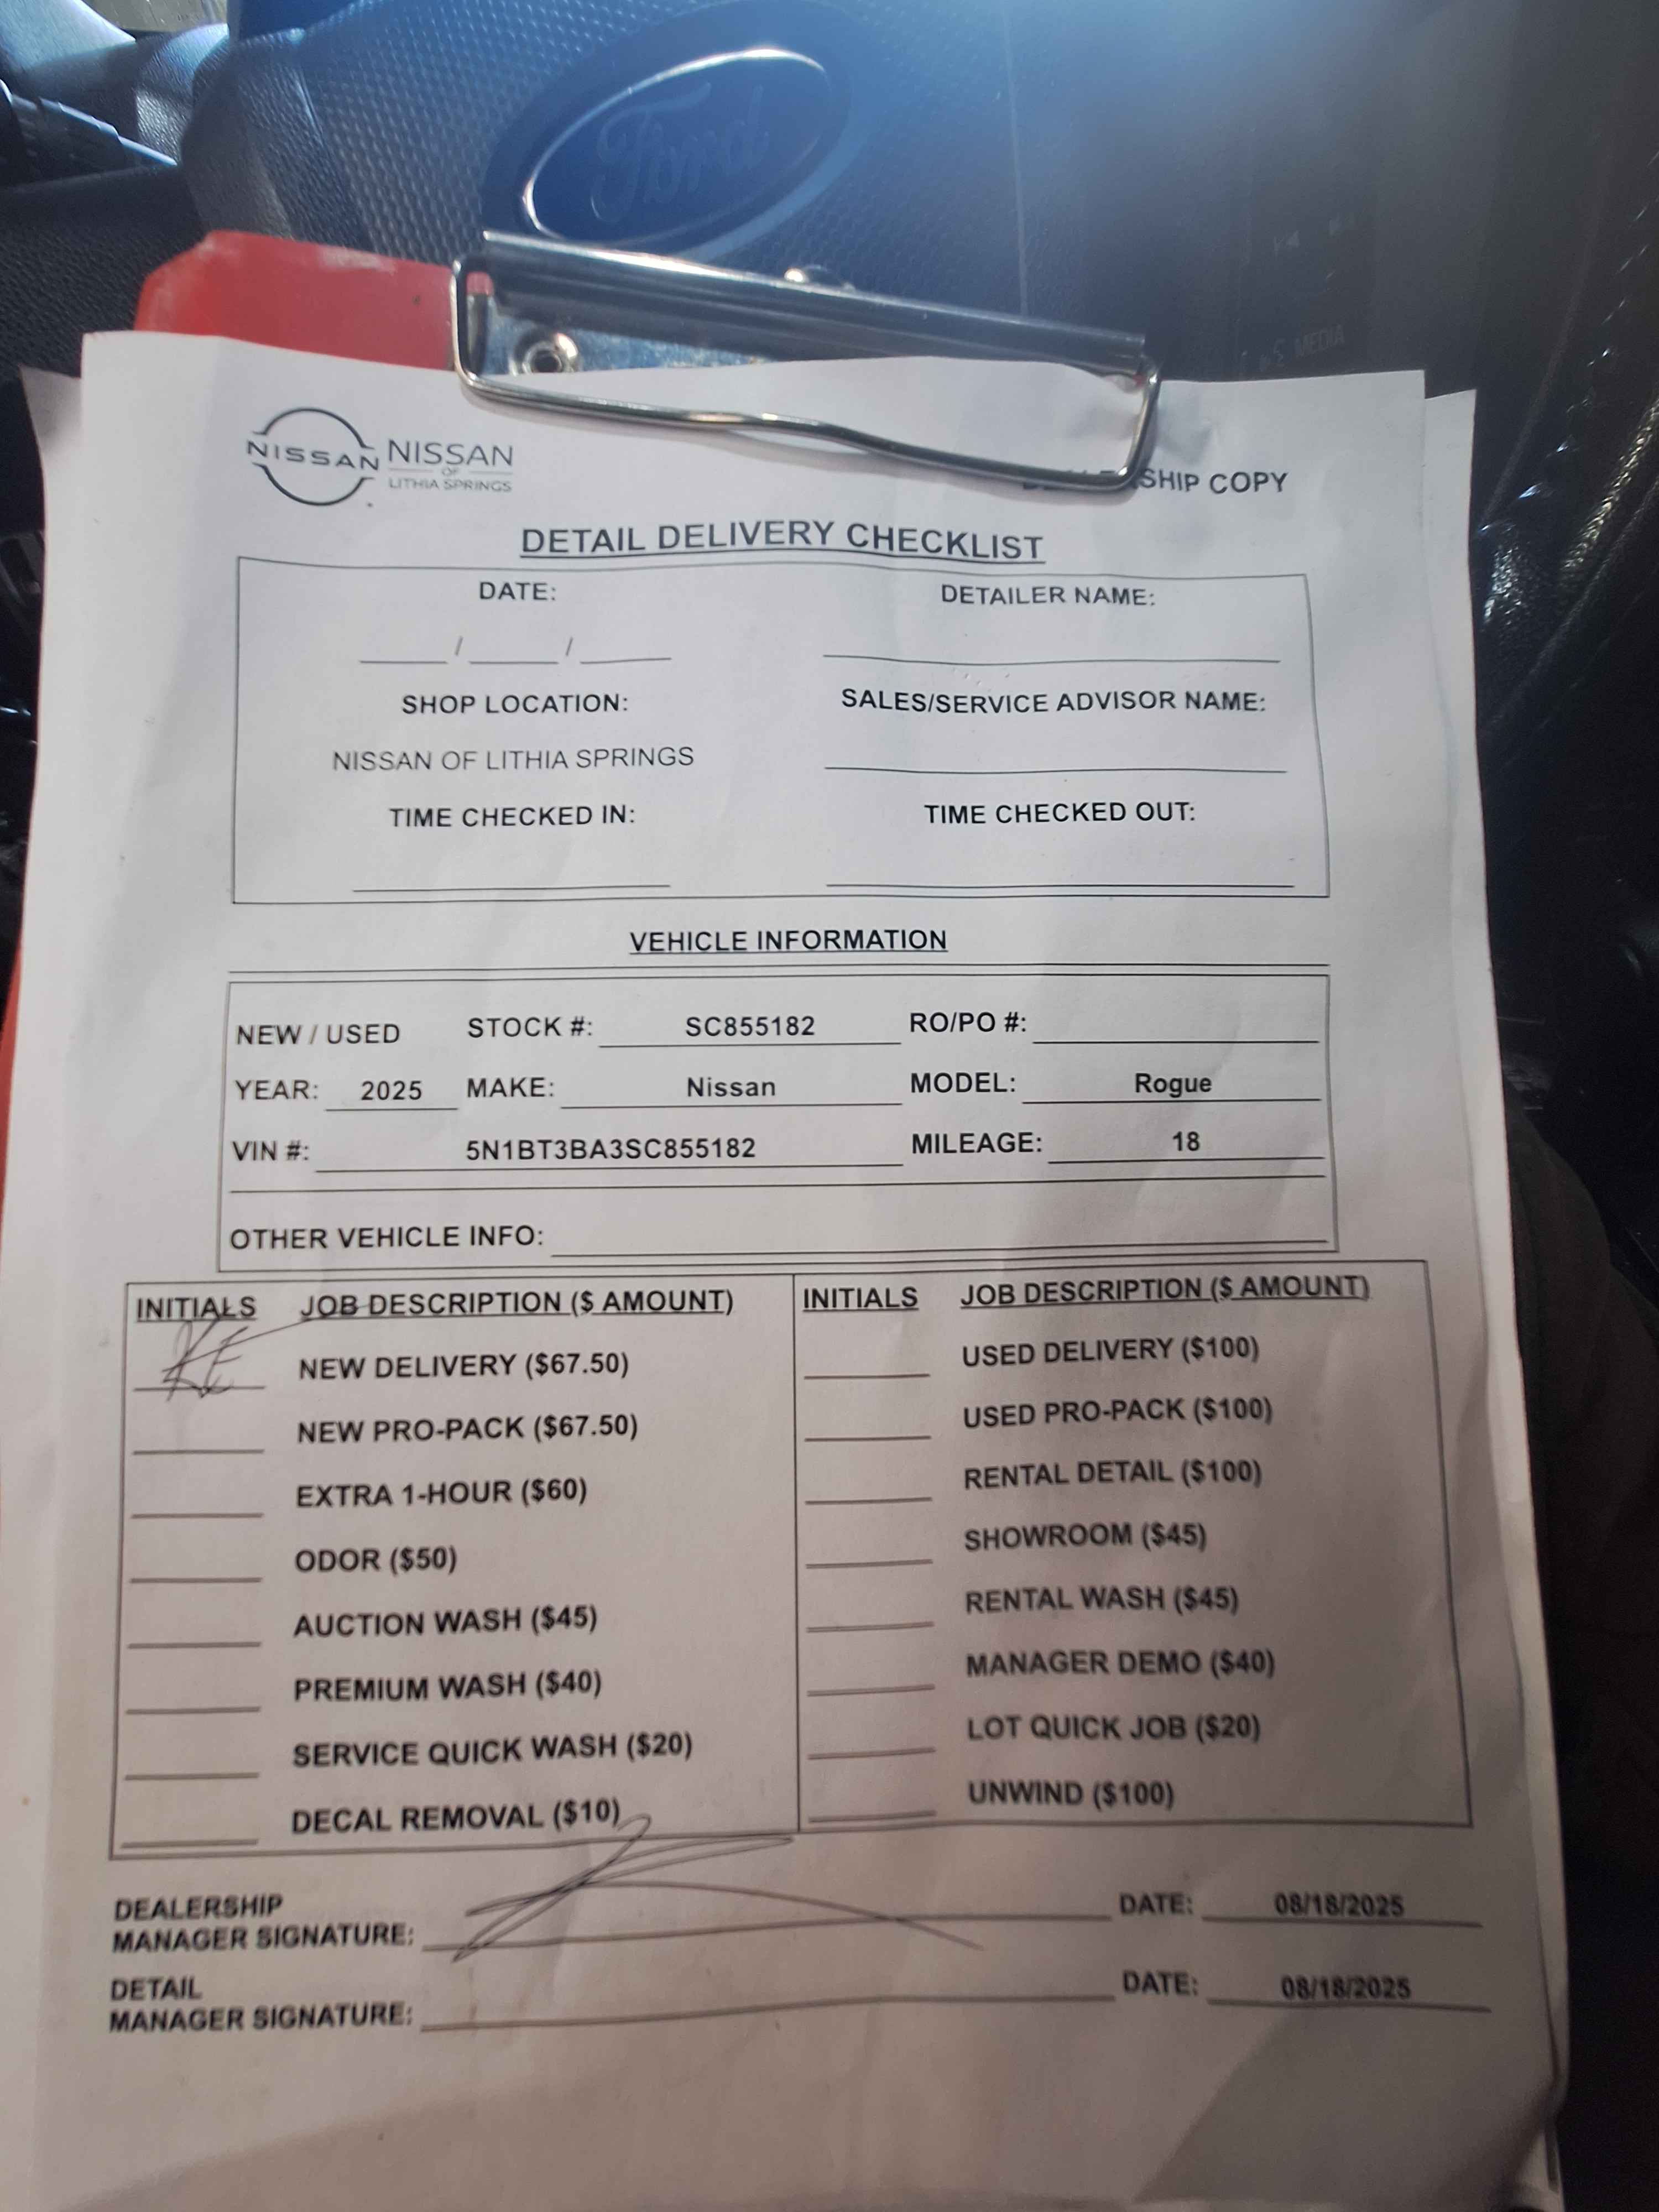 Ford
MEDIA
NISSAN NISSAN
OF
LITHIA SPRINGS
SHIP COPY
DETAIL DELIVERY CHECKLIST
DATE: DETAILER NAME:
____ / ____ / ____ ____
SHOP LOCATION: SALES/SERVICE ADVISOR NAME:
NISSAN OF LITHIA SPRINGS ____
TIME CHECKED IN: TIME CHECKED OUT:
VEHICLE INFORMATION
NEW / USED STOCK #: SC855182 RO/PO #:
YEAR: 2025 MAKE: Nissan MODEL: Rogue
VIN #: 5N1BT3BA3SC855182 MILEAGE: 18
OTHER VEHICLE INFO:
INITIALS JOB DESCRIPTION ($ AMOUNT) INITIALS JOB DESCRIPTION ($ AMOUNT)
KE NEW DELIVERY ($67.50) USED DELIVERY ($100)
NEW PRO-PACK ($67.50) USED PRO-PACK ($100)
EXTRA 1-HOUR ($60) RENTAL DETAIL ($100)
ODOR ($50) SHOWROOM ($45)
AUCTION WASH ($45) RENTAL WASH ($45)
PREMIUM WASH ($40) MANAGER DEMO ($40)
SERVICE QUICK WASH ($20) LOT QUICK JOB ($20)
DECAL REMOVAL ($10) UNWIND ($100)
DEALERSHIP
MANAGER SIGNATURE: DATE: 08/18/2025
DETAIL
MANAGER SIGNATURE: DATE: 08/18/2025